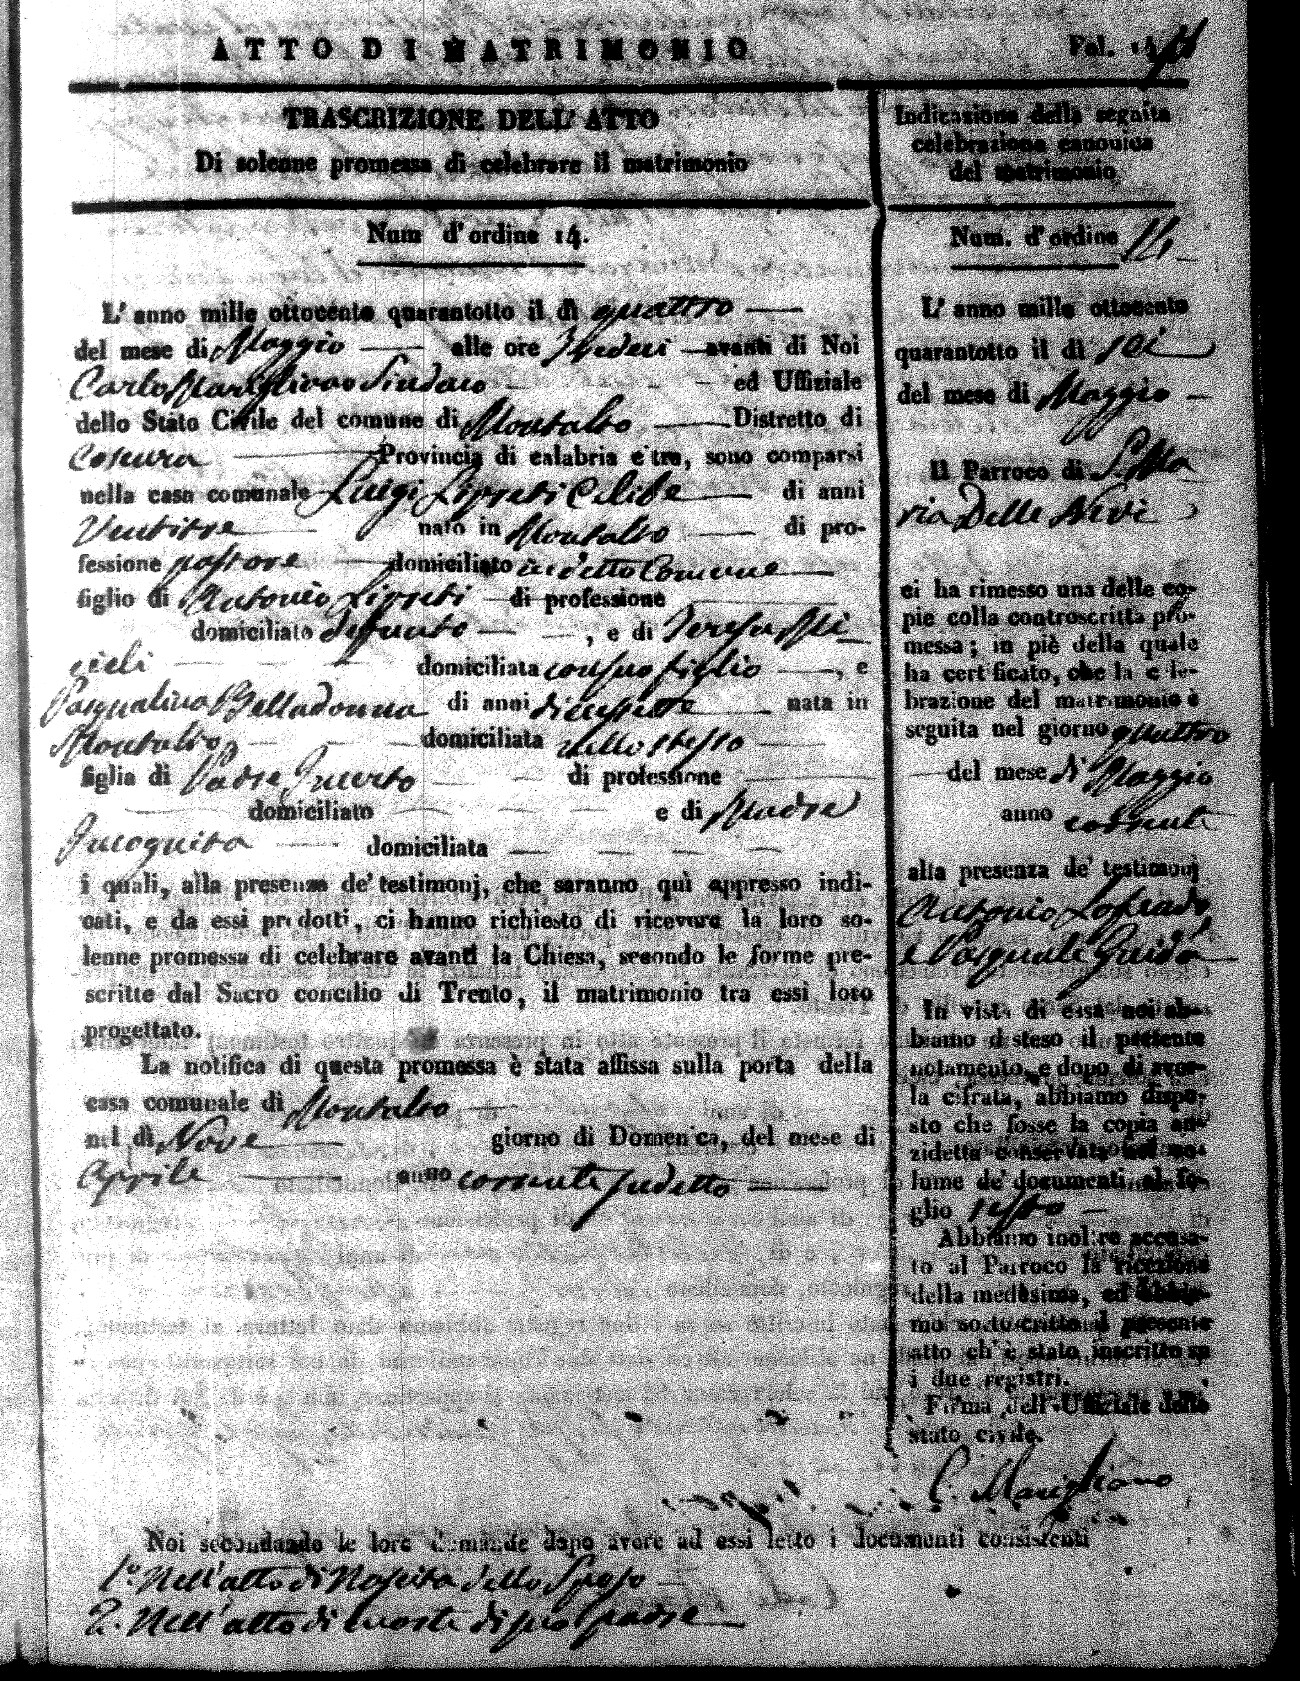 ATTO DI MATRIMONIO
Fol.
TRASCRIZIONE DELL' ATTO
Di solenne promessa di celebrare il matrimonio
Num d'ordine 14.
L' anno mille ottocento quarantotto il dì quattro
del mese di Maggio alle ore Sedeci avanti di Noi
Carlo Marigliano Sindaco ed Uffiziale
dello Stato Civile del comune di Montalto Distretto di
Cosenza Provincia di calabria citra, sono comparsi
nella casa comunale Luigi Celibe di anni
Ventitre nato in Montalto di pro-
fessione pastore domiciliato in detto Comune
figlio di Antonio di professione
domiciliato defunto , e di Teresa
domiciliata con suo figlio , e
Pasqualina Belladonna di anni diecisette nata in
Montalto domiciliata nello stesso
figlia di Padre Incerto di professione
domiciliato e di Madre
Incognita domiciliata
i quali, alla presenza de' testimonj, che saranno qui appresso indi-
cati, e da essi prodotti, ci hanno richiesto di ricevere la loro so-
lenne promessa di celebrare avanti la Chiesa, secondo le forme pre-
scritte dal Sacro concilio di Trento, il matrimonio tra essi loro
progettato.
La notifica di questa promessa è stata affissa sulla porta della
casa comunale di Montalto
nel dì Nove giorno di Domenica, del mese di
Aprile anno corrente sudetto
Noi secondando le loro domande dopo avere ad essi letto i documenti consistenti
1.° Nell'atto di Nascita dello Sposo
2. Nell'atto di morte di suo padre
Indicazione della seguita
celebrazione canonica
del matrimonio
Num. d'ordine 14
L' anno mille ottocento
quarantotto il dì sei
del mese di Maggio
Il Parroco di S. Ma
ria Delle Nevi
ci ha rimesso una delle co-
pie colla controscritta pro-
messa; in piè della quale
ha certificato, che la cele-
brazione del matrimonio è
seguita nel giorno quattro
del mese di Maggio
anno corrente
alla presenza de' testimonj
Antonio Lofrado
e Pasquale Guido
In vista di essa noi ab-
biamo disteso il presente
notamento, e dopo di aver-
la cifrata, abbiamo dispo-
sto che fosse la copia an-
zidetta conservata nel vo-
lume de' documenti al fo-
glio sesto
Abbiamo inoltre accusa-
to al Parroco la ricezione
della medesima, ed abbia-
mo sottoscritto il presente
atto ch' è stato inscritto su
i due registri.
Firma dell' Uffiziale dello
stato civile.
C. Marigliano